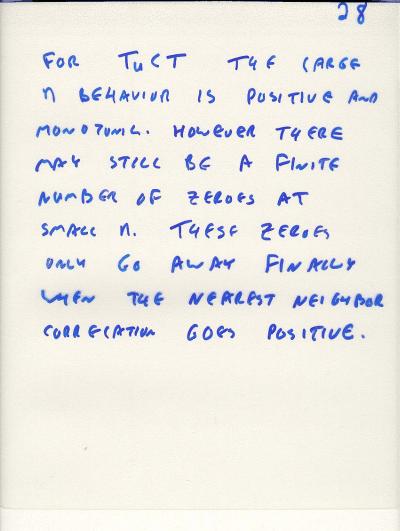 28
FOR TuCT THE LARGE
n BEHAVIOR IS POSITIVE AND
MONOTONIC. HOWEVER THERE
MAY STILL BE A FINITE
NUMBER OF ZEROES AT
SMALL n. THESE ZEROES
ONLY GO AWAY FINALLY
WHEN THE NEAREST NEIGHBOR
CORRELATION GOES POSITIVE.